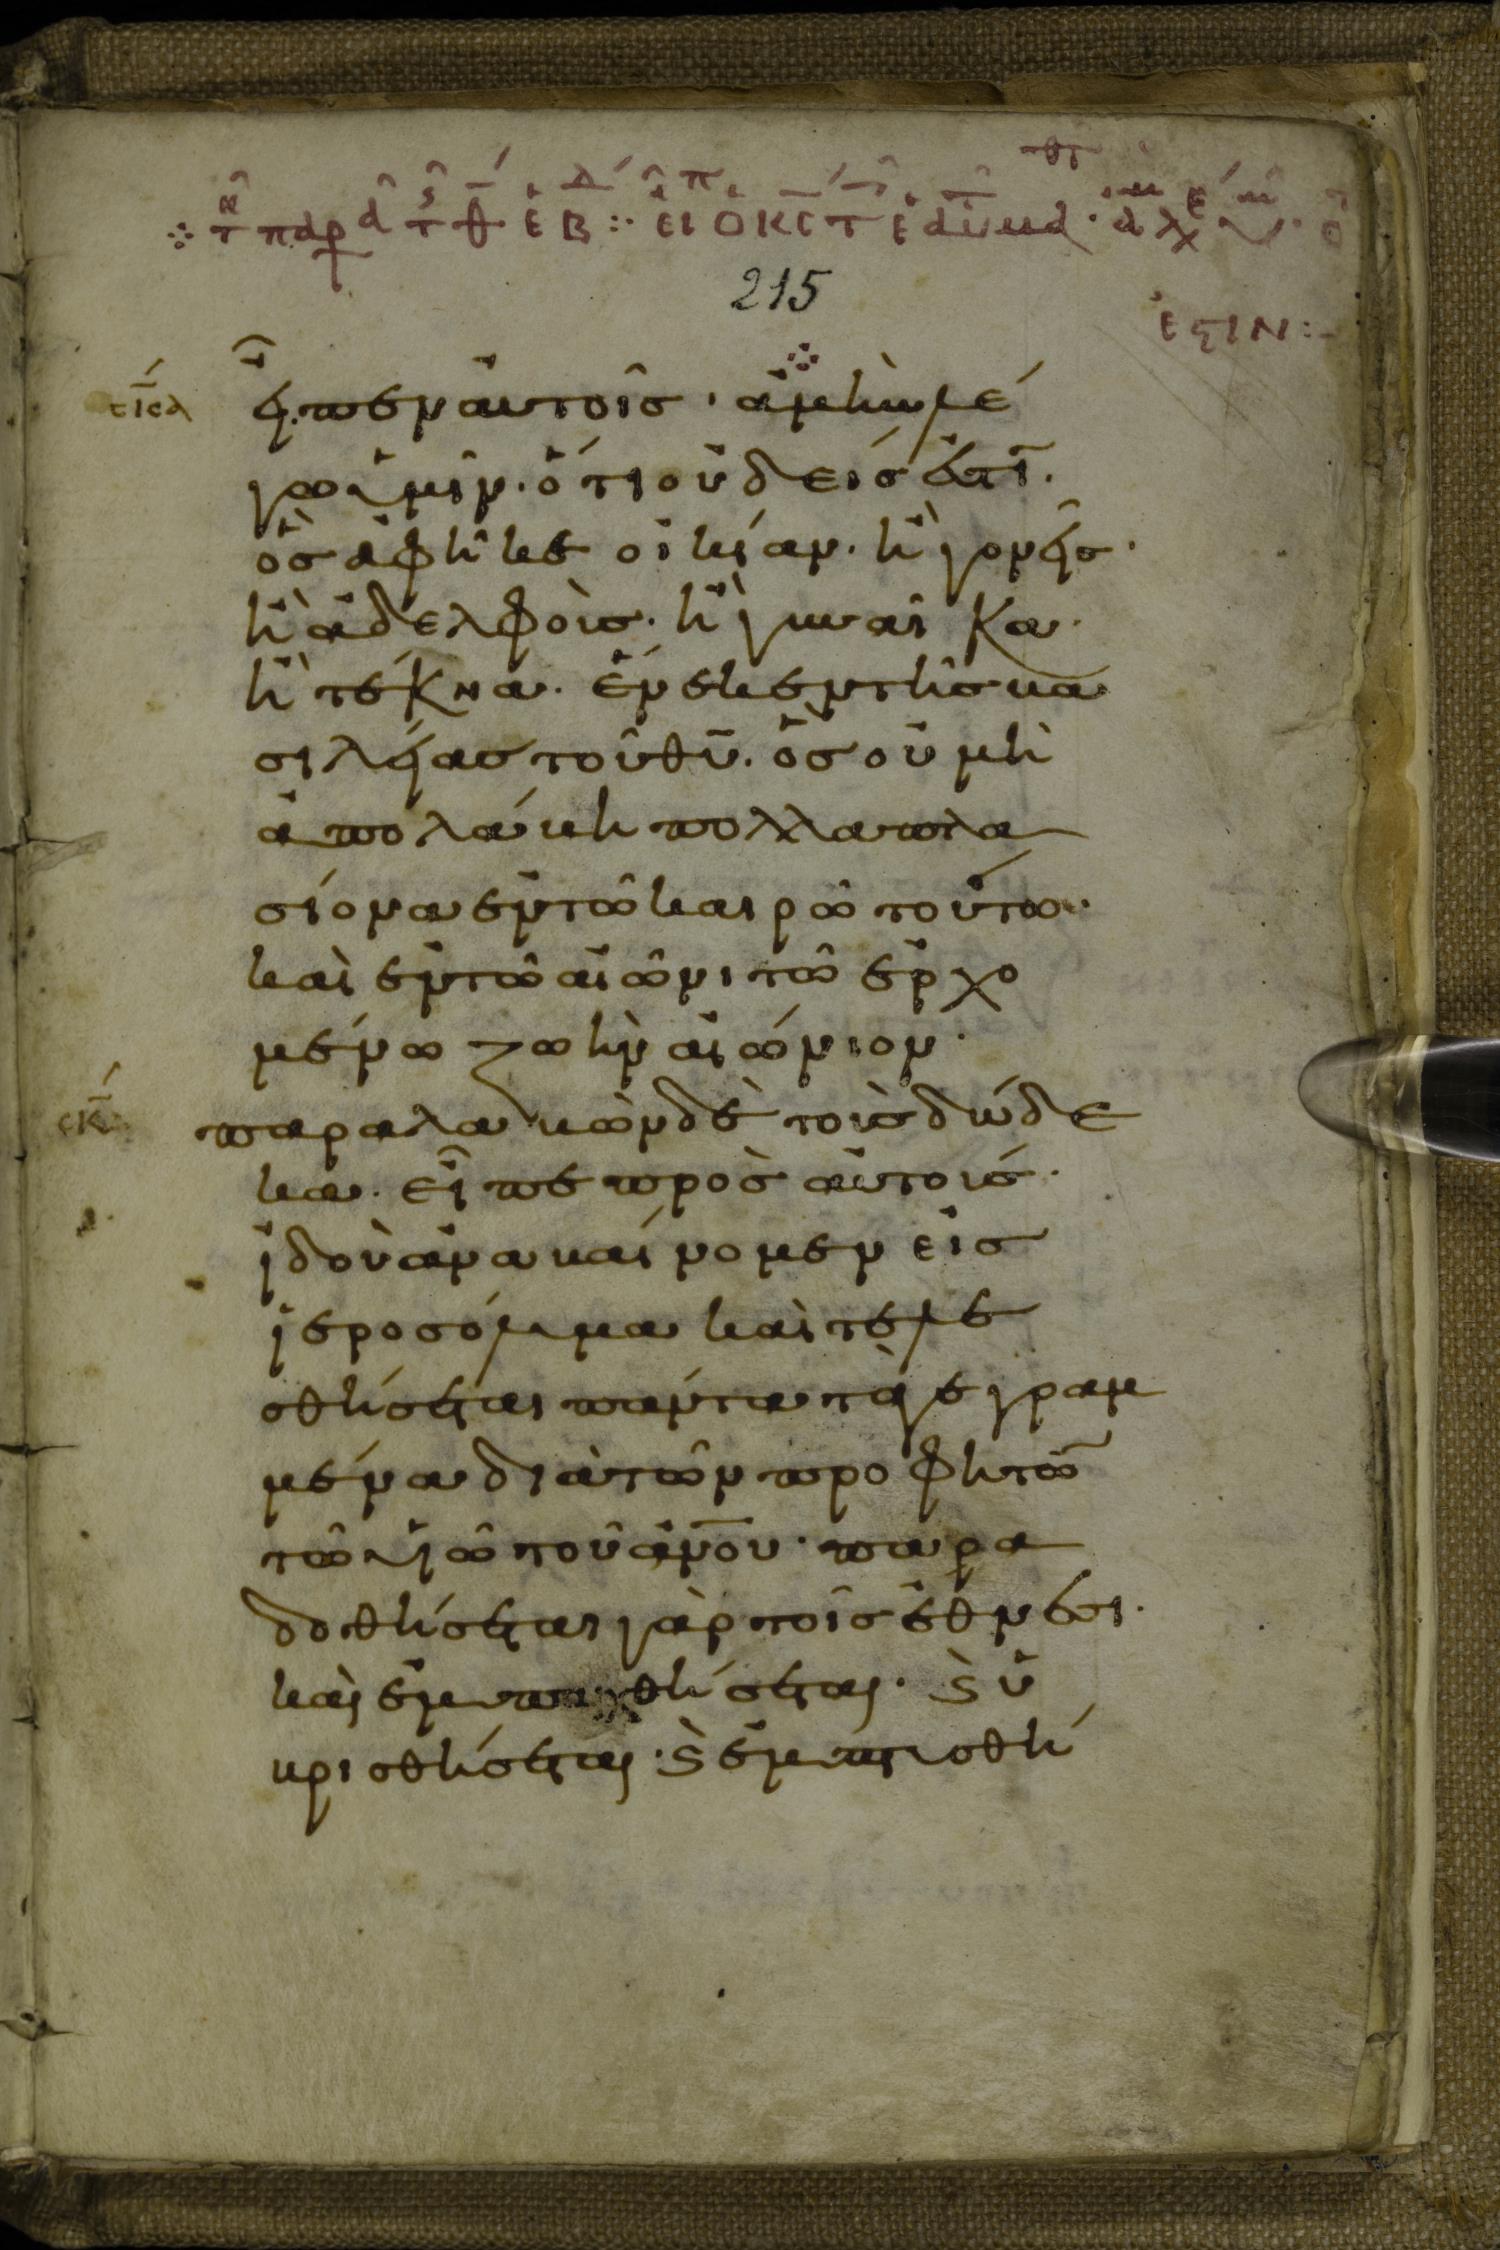 215
εἶπεν αὐτοῖς· ἀμὴν λέ
γω ὑμῖν· ὅτι οὐδείς ἐστῖ·
ὃς ἀφῆκε οἰκίαν· ἢ γονεῖς·
ἢ ἀδελφοὺς· ἢ γυναῖκα·
ἢ τέκνα· ἕνεκεν τῆς βα
σιλείας τοῦ θῦ· ὃς οὐ μὴ
ἀπολάβη πολλαπλα
σίονα ἐν τῶ καιρῶ τούτω·
καὶ ἐν τῶ αἰῶνι τῶ ἐρχο
μένω ζωὴν αἰώνιον·
παραλαβὼν δὲ τοὺς δώδε
κα· εἶπε πρὸς αὐτούς·
ἰδοὺ ἀναβαίνομεν εἰς
ἱεροσόλυμα καὶ τελε
σθήσεται πάντα τὰ γεγραμ
μένα διὰ τῶν προφητῶ
τῶ υἱῶ τοῦ ἀνου· παρα
δοθήσεται γὰρ τοῖς ἔθνεσι·
καὶ ἐμπαιχθήσεται· ϗ ὑ
βρισθήσεται· ϗ ἐμπτυσθή